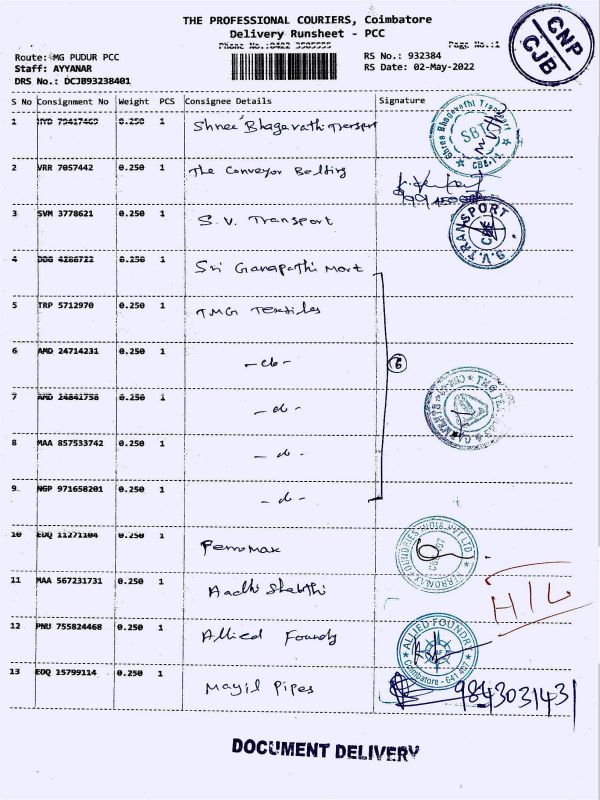 THE PROFESSIONAL COURIERS, Coimbatore
Delivery Runsheet - PCC
Phone No.:0422 3505555 Page No.:1
CNP
CJB
Route: MG PUDUR PCC RS No.: 932384
Staff: AYYANAR RS Date: 02-May-2022
DRS No.: DCJB93238401
S No Consignment No Weight PCS Consignee Details Signature
1 HYD 79417469 0.250 1 Shree Bhagavathi Transport
Shree Bhagavathi Transport SBT CBE
2 VRR 7057442 0.250 1 The Conveyor Belting
3 SVM 3778621 0.250 1 S.V. Transport
S.V. TRANSPORT CBE
4 4286722 0.250 1 Sri Ganapathi Mart
5 TRP 5712970 0.250 1 TMG Textiles
6 AMD 24714231 0.250 1 -do-
6
7 AMD 24841758 0.250 1 -do-
8 MAA 857533742 0.250 1 -do-
9 NGP 971658201 0.250 1 -do-
10 EDQ 11271104 0.250 1 Perromax
11 MAA 567231731 0.250 1 Aadhi Shakthi
H/L
12 PNU 755824468 0.250 1 Allied Foundry
ALLIED FOUNDRY Coimbatore - 641 497
13 EDQ 15799114 0.250 1 Mayil Pipes 9843031431
DOCUMENT DELIVERY